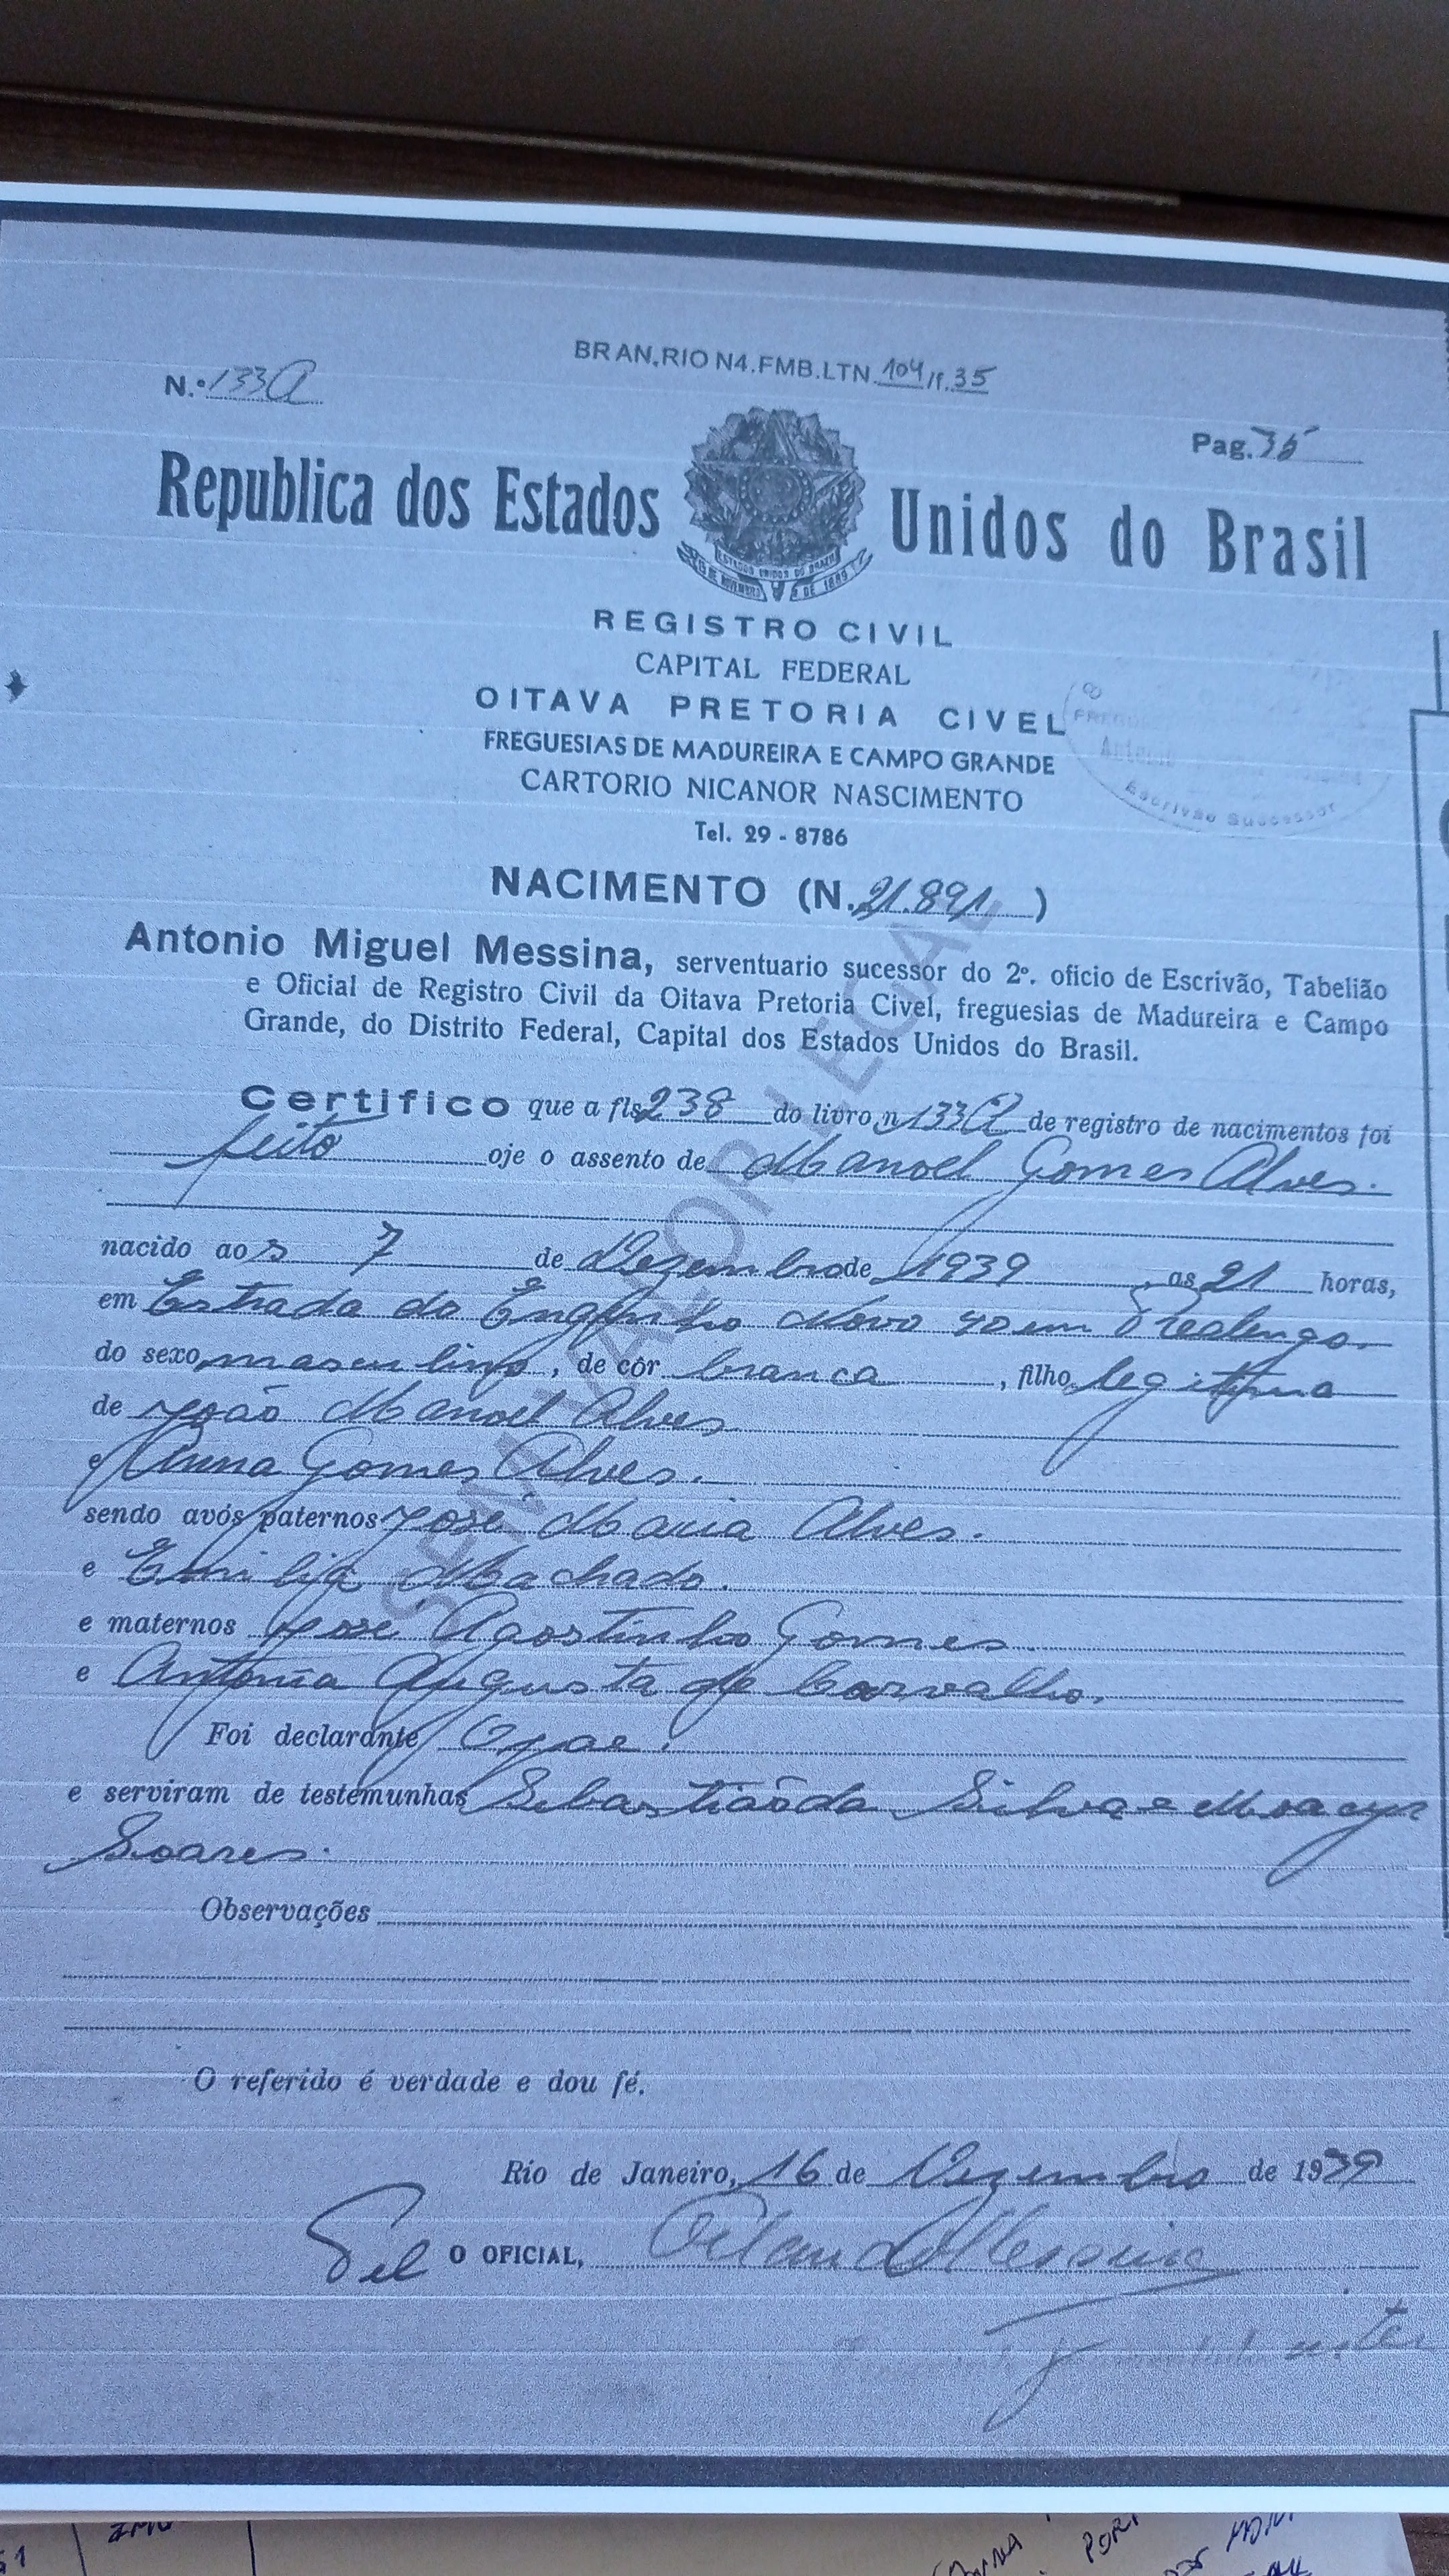 BR AN,RIO N4.FMB.LTN.104/f.35
N.º 133A
Pag. 35
Republica dos Estados Unidos do Brasil
ESTADOS UNIDOS DO BRAZIL
15 DE NOVEMBRO DE 1889
REGISTRO CIVIL
CAPITAL FEDERAL
OITAVA PRETORIA CIVEL
FREGUESIAS DE MADUREIRA E CAMPO GRANDE
CARTORIO NICANOR NASCIMENTO
Escrivão Sucessor
Tel. 29 - 8786
NACIMENTO (N. 21.891)
Antonio Miguel Messina, serventuario sucessor do 2º. oficio de Escrivão, Tabelião
e Oficial de Registro Civil da Oitava Pretoria Civel, freguesias de Madureira e Campo
Grande, do Distrito Federal, Capital dos Estados Unidos do Brasil.
Certifico que a fls 238 do livro n 133A de registro de nacimentos foi
feito oje o assento de Manoel Gomes Alves.
nacido aos 7 de Dezembro de 1939, as 21 horas,
em Estrada do Engenho Novo 40 em Realengo
do sexo masculino, de côr branca, filho legitimo
de João Manoel Alves
e Anna Gomes Alves.
sendo avós paternos José Maria Alves.
e Emilia Machado.
e maternos José Agostinho Gomes
e Antonia Augusta de Carvalho.
Foi declarante O pae.
e serviram de testemunhas Sebastião da Silva e Moacyr
Soares.
Observações
O referido é verdade e dou fé.
Rio de Janeiro, 16 de Dezembro de 1939
O OFICIAL, Orlando Messina
SEM VALOR LEGAL